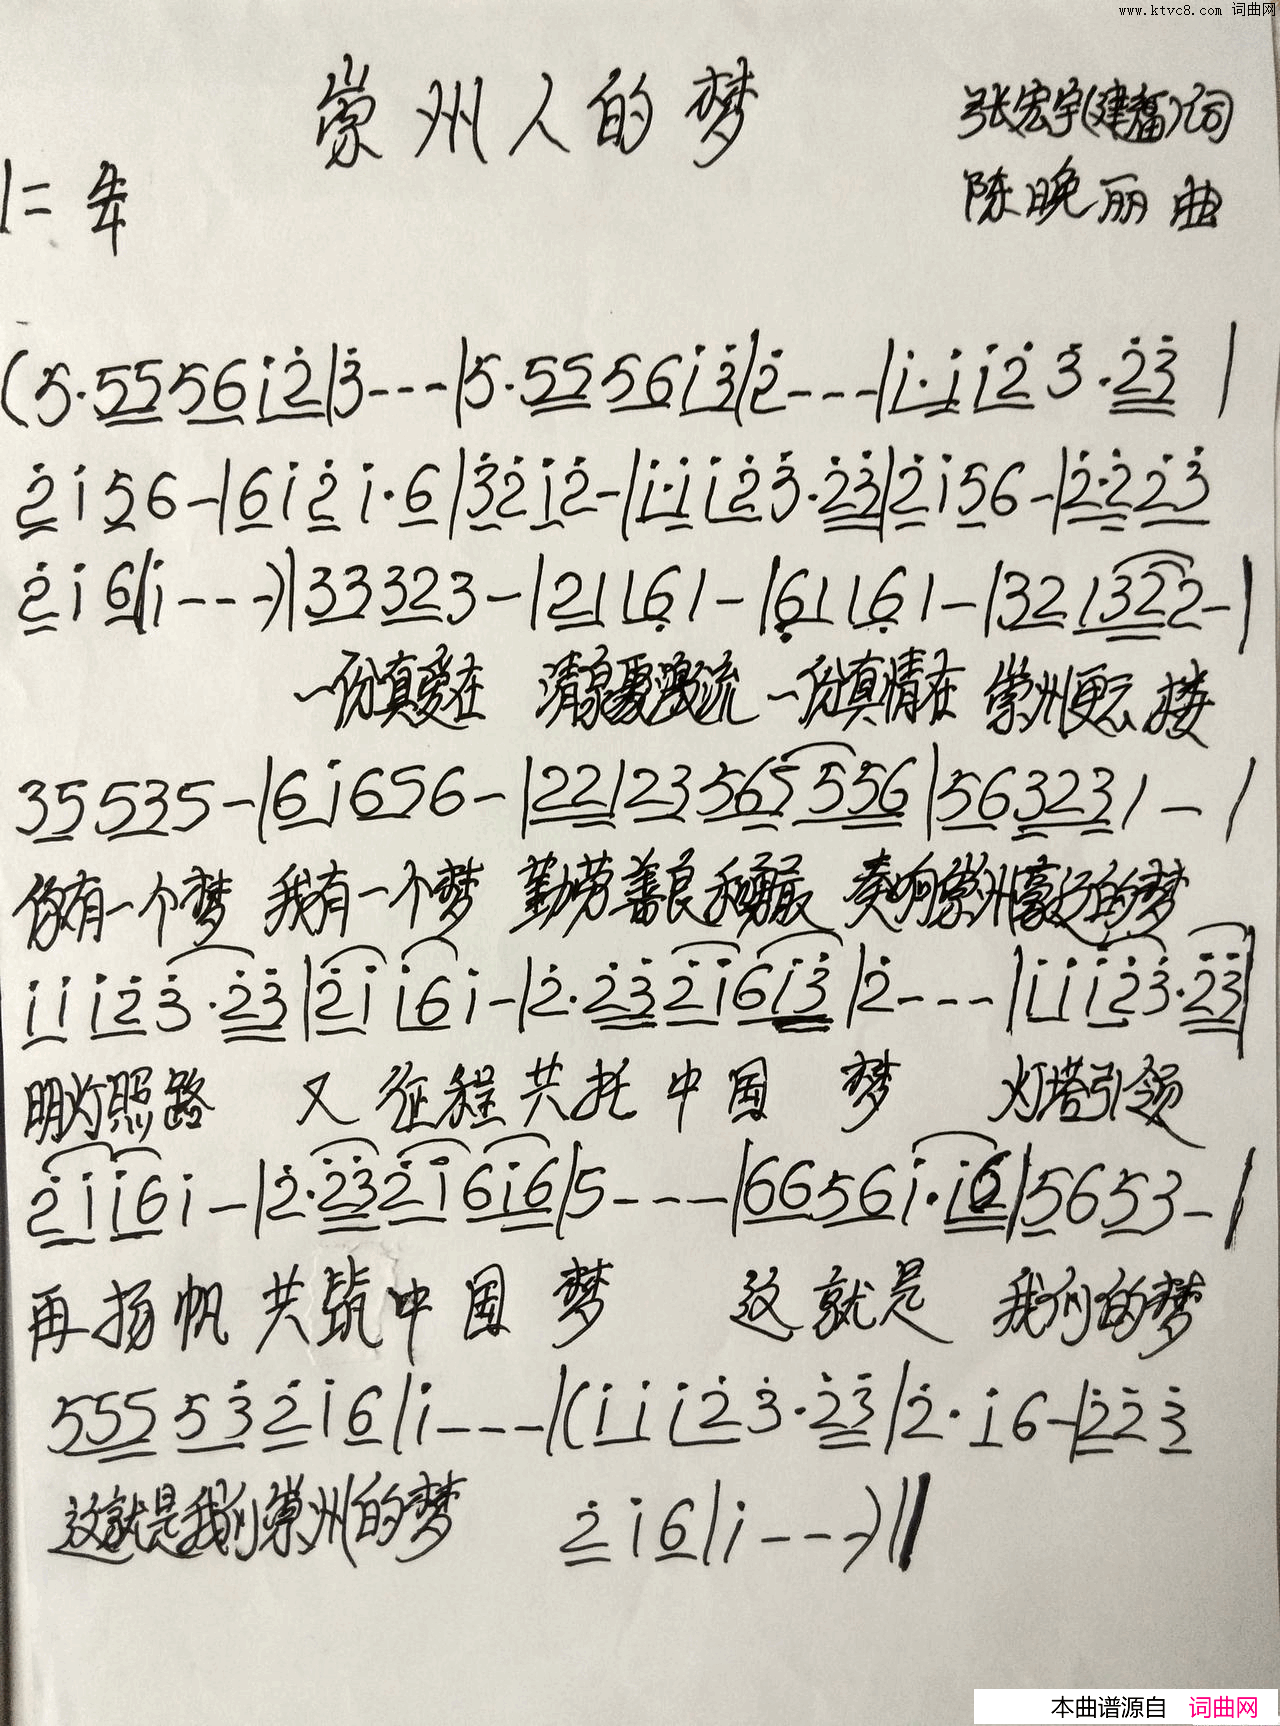 www.ktvc8.com 词曲网
崇州人的梦
张宏宇(建福)词
1= 4/4
陈晚丽 曲
(5·55 56 i̇2̇|3̇---|5·55 56 i̇3̇|2̇---|i̇·i̇ i̇2̇ 3̇·2̇3̇|
2̇ i̇ 5 6-|6 i̇ 2̇ i̇·6|3̇ 2̇ i̇ 2̇-|i̇·i̇ i̇2̇ 3̇·2̇3̇|2̇ i̇ 5 6-|2̇·2̇ 2̇3̇
2̇ i̇ 6|i̇---)|33 32 3-|21 16̣ 1-|6̣1 16̣ 1-|32 1322-|
一份真爱在 清泉 流 一份真情在 崇州更 楼
35 53 5-|6i̇ 65 6-|22123 565 556|56 323 1-|
你有一个梦 我有一个梦 勤劳善良和勇敢 奏响崇州 的梦
i̇i̇ i̇2̇ 3̇·2̇3̇|2̇i̇ i̇6 i̇-|2̇·2̇3̇ 2̇i̇ 6i̇3̇|2̇---|i̇i̇ i̇2̇3̇·2̇3̇|
明灯照路 又征程共托中国 梦 灯塔引领
2̇i̇ i̇6 i̇-|2̇·2̇3̇ 2̇i̇ 6i̇6|5---|66 56 i̇·i̇6|56 53-|
再扬帆 共筑中国 梦 这就是 我们的梦
555 53̇ 2̇ i̇ 6|i̇---|(i̇i̇ i̇2̇ 3̇·2̇3̇|2̇·i̇ 6-|2̇2̇ 3̇
这就是我们崇州的梦 2̇ i̇ 6|i̇---)‖
本曲谱源自 词曲网